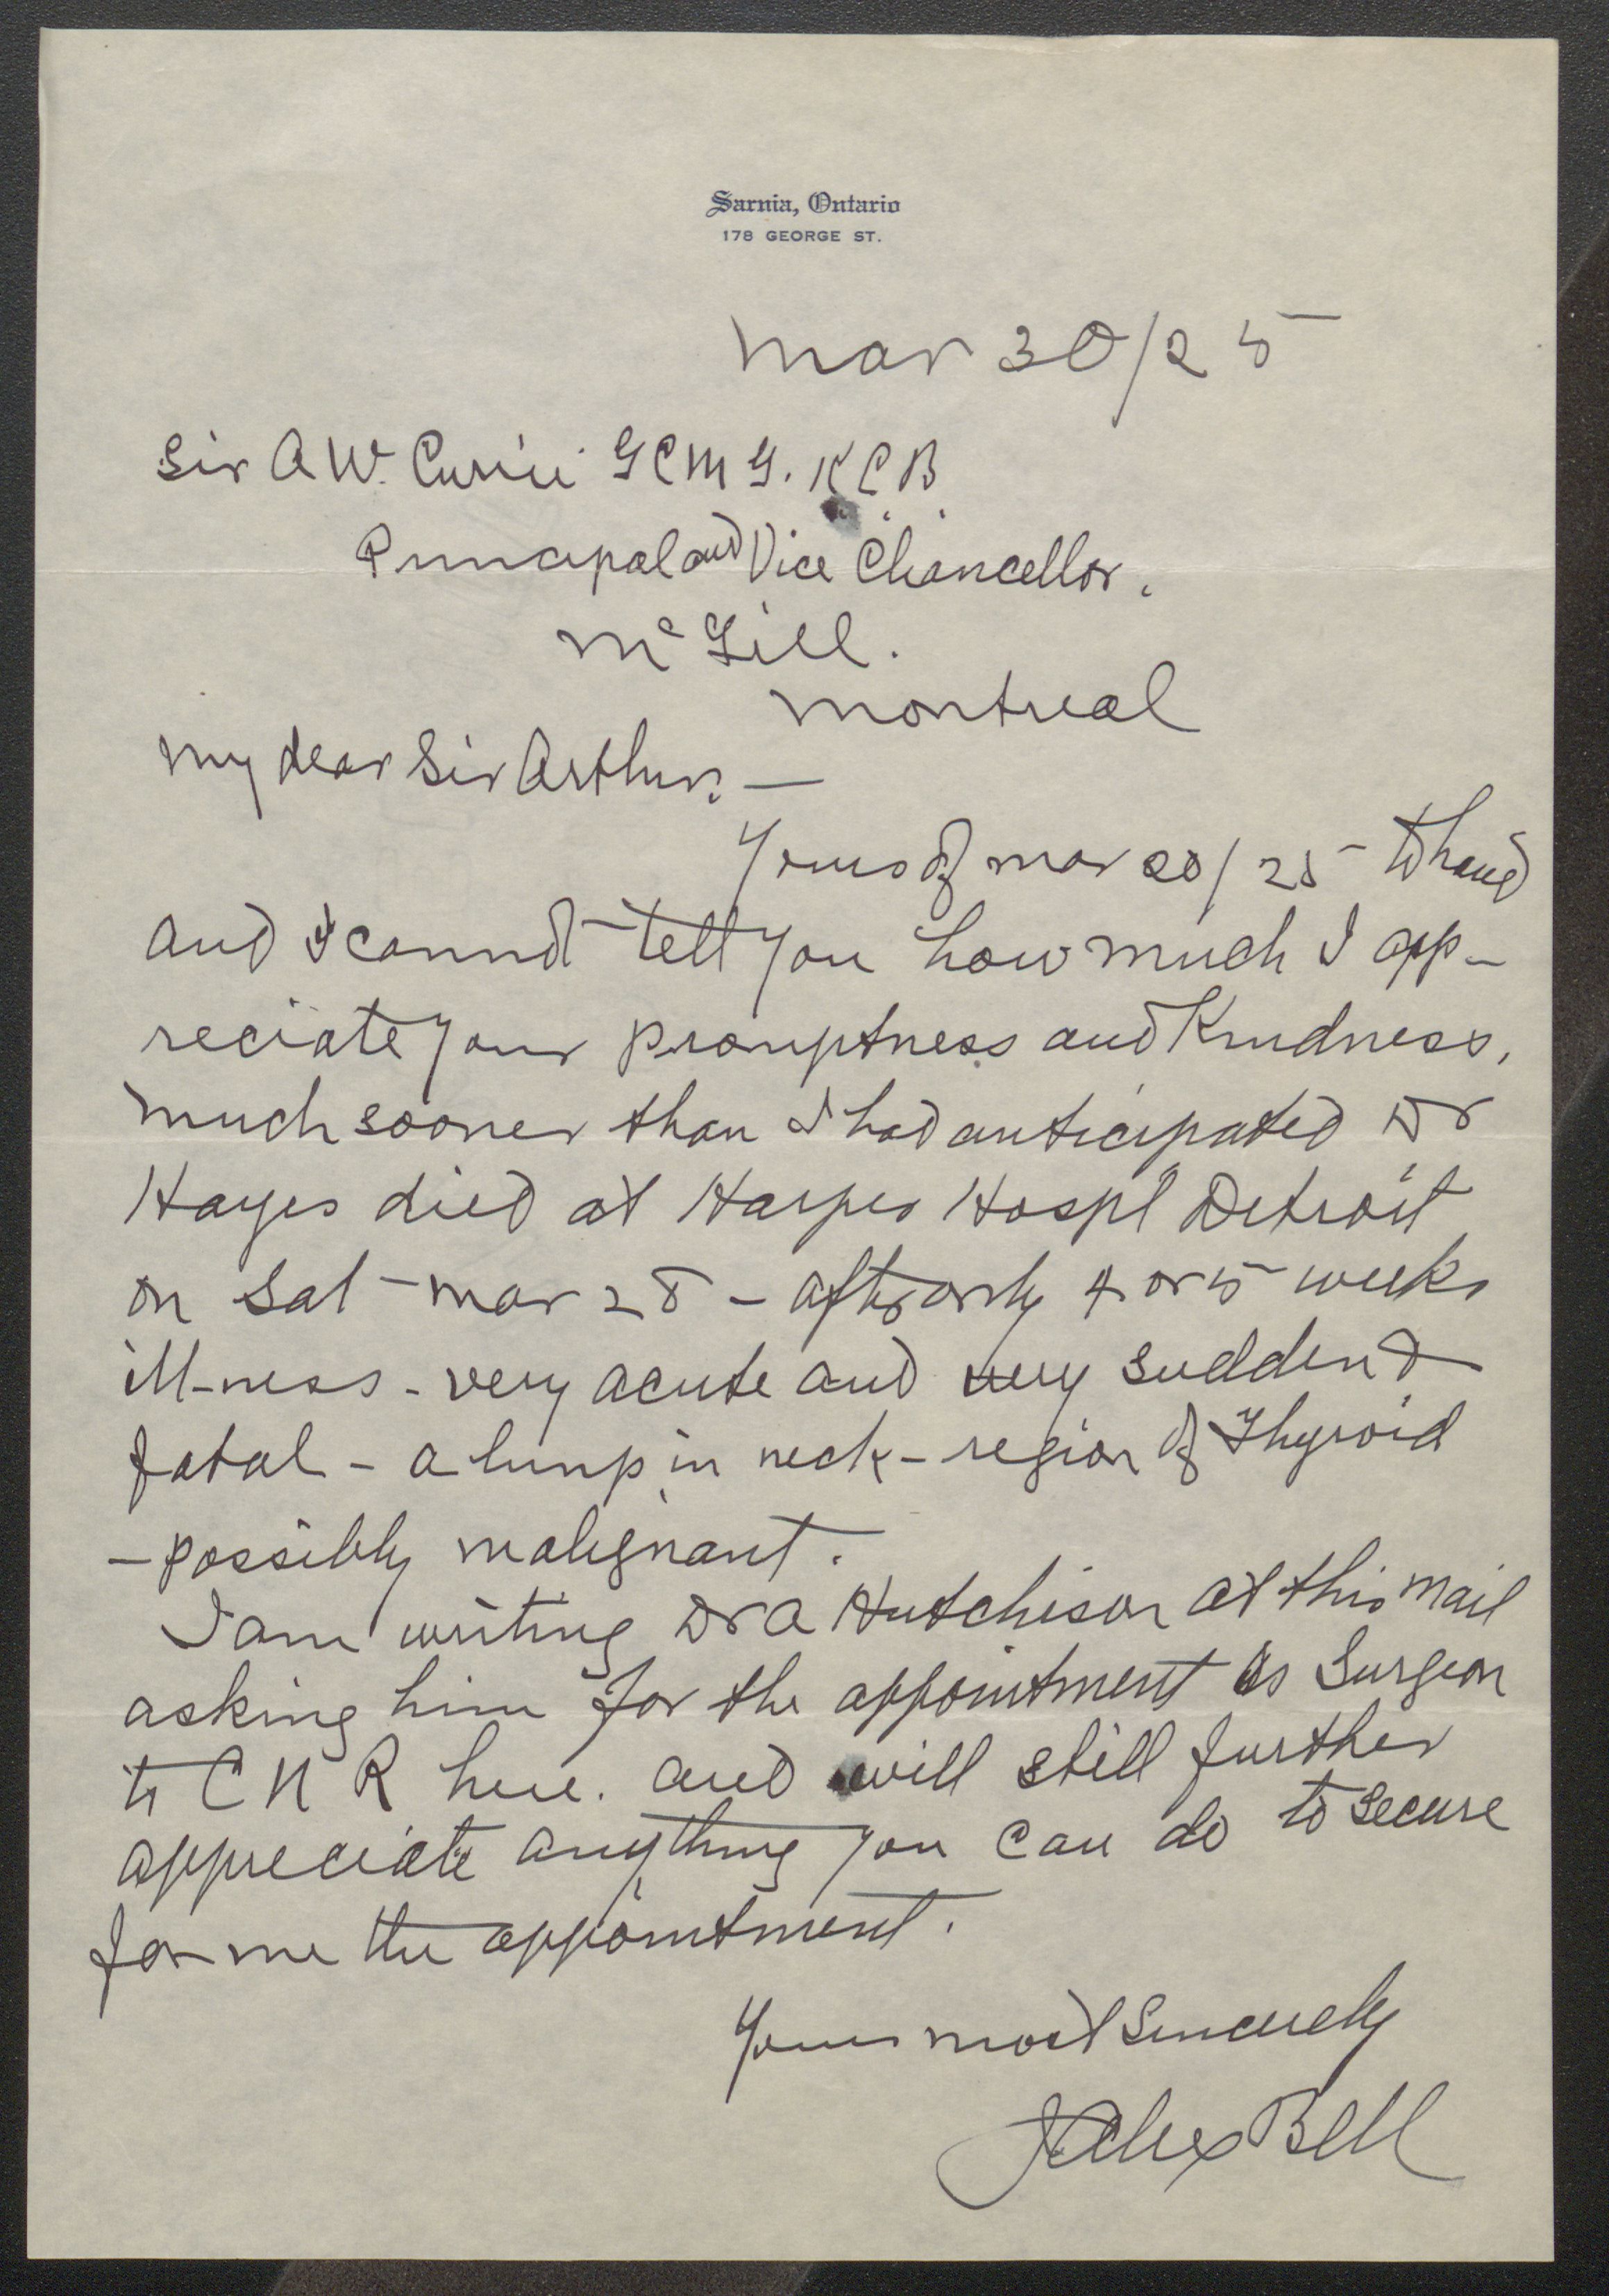 Sarnia, Ontario
178 GEORGE ST.
Mar 30/25
Sir A W. Currie G C M G. K C B.
Principal and Vice Chancellor.
McGill.
Montreal
My dear Sir Arthur: —
Yours of Mar 20/25 to hand
and I cannot tell you how much I app-
reciate your promptness and Kindness,
Much sooner than I had anticipated Dr
Hayes died at Harper Hospl Detroit
on Sat Mar 28 - after only 4 or 5 weeks
ill-ness - very acute and very sudden &
fatal - a lump in neck - region of Thyroid
- possibly malignant.
I am writing Dr A Hutchison at this mail
asking him for the appointment as Surgeon
to C N R here. and will still further
appreciate anything you can do to secure
for me the appointment.
Yours most Sincerely
J Alex Bell